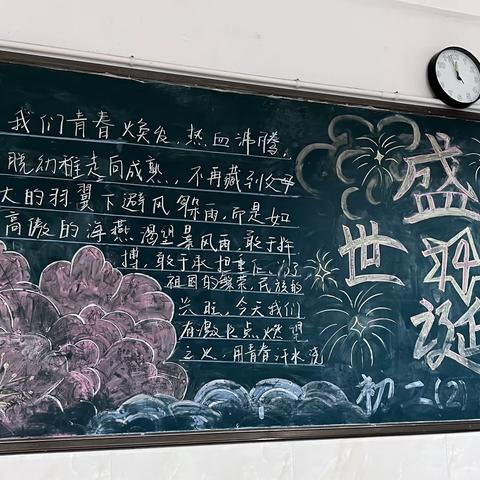 我们青春焕发，热血沸腾，
脱幼稚走向成熟，不再藏到父母
大的羽翼下避风躲雨，而是如
高傲的海燕渴望暴风雨，敢于拼
搏，敢于承担重任，为了
祖国的繁荣，民族的
兴旺，今天我们
在激起点燃
之火，用青春汗水浇
盛
世
诞
初二(2)